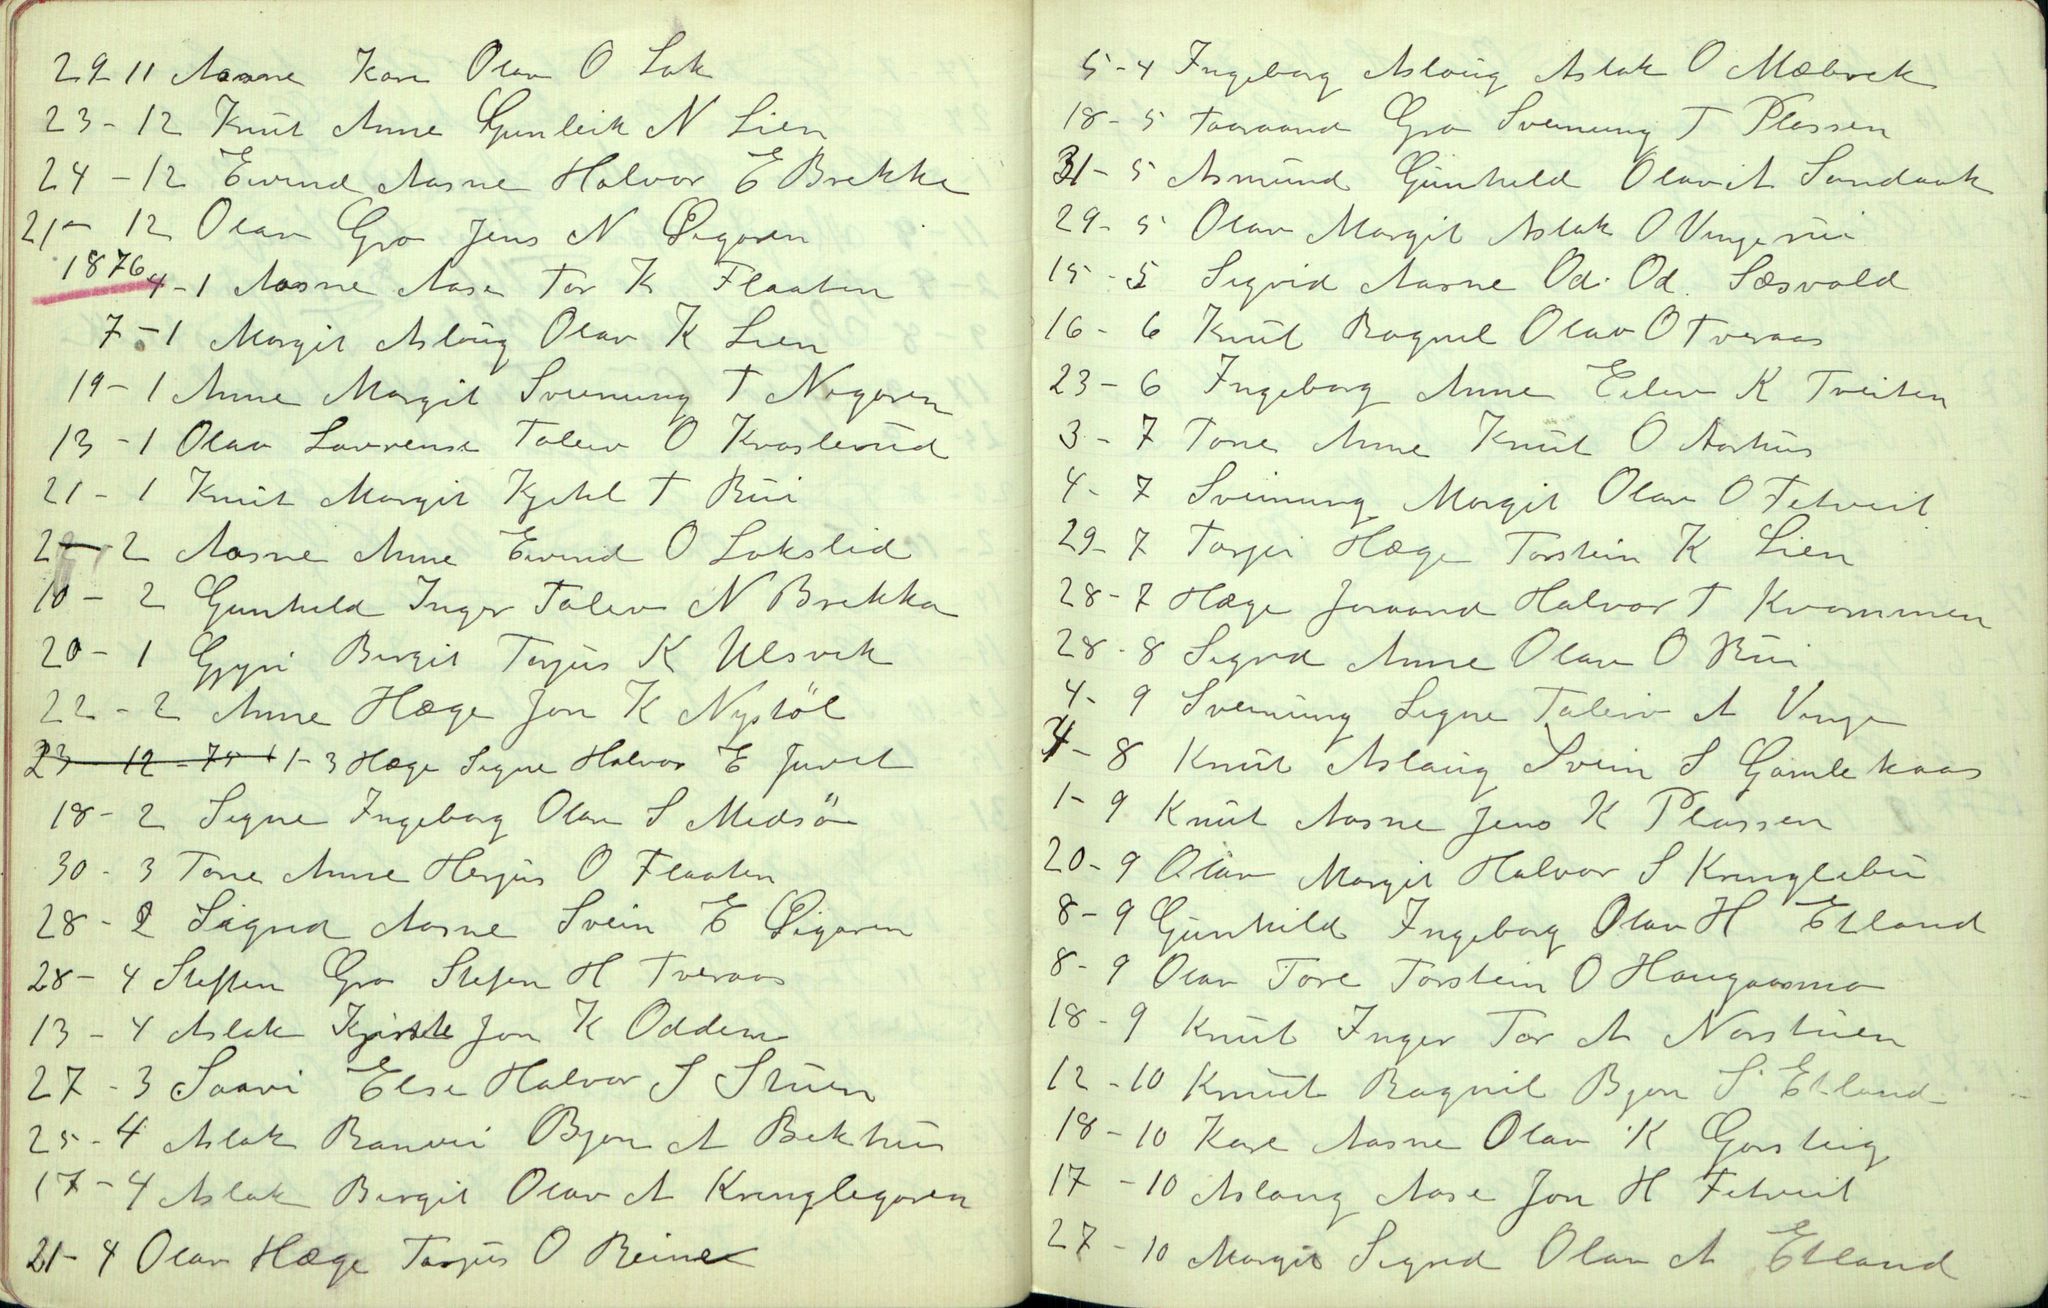 29 11 Aasne Kari Olav O Lok
23 - 12 Knut Anne Gunleik N Lien
24 - 12 Eivind Aasne Halvor E Brekke
21 - 12 Olav Gro Jens N Øigaren
1876
4 - 1 Aasne Aase Tor K Flaaten
7 - 1 Margit Aslaug Olav K Lien
19 - 1 Anne Margit Sveinung T Nigaren
13 - 1 Olav Lavrense Taleiv O Kvaslerud
21 - 1 Knut Margit Kjetel T Bui
2 - 2 Aasne Anne Eivind O Lokslid
10 - 2 Gunhild Inger Taleiv N Brekka
20 - 1 Gyri Birgit Torjus K Ulsvik
22 - 2 Anne Hæge Jon K Nystöl
23 - 12 - 75 1 - 3 Hæge Signe Halvor E Juvet
18 - 2 Signe Ingeborg Olav S Midsö
30 - 3 Tone Anne Herjus O Flaaten
28 - 2 Sigrid Aasne Svein E Øigaren
28 - 4 Steffen Gro Stefen H Tveraas
13 - 4 Aslak Jon K Odden
27 - 3 Saavi Else Halvor S Stuen
25 - 4 Aslak Ranvei Bjøn A Bekhus
17 - 4 Aslak Birgit Olav A Kringlegaren
21 - 4 Olav Hæge Torjus O Reine
5 - 4 Ingeborg Aslaug Aslak O Mæbrek
18 - 5 Taaraand Gro Sveinung T Plassen
31 - 5 Asmund Gunhild Olav A Sandaak
29 - 5 Olav Margit Aslak O Vingerui
15 - 5 Sigrid Aasne Od. Od. Sæsvold
16 - 6 Knut Ragnil Olav O Tveraas
23 - 6 Ingeborg Anne Eilev K Tveiten
3 - 7 Tone Anne Knut O Aarhus
4 - 7 Sveinung Margit Olav O Fetveit
29 - 7 Torjei Hæge Torstein K Lien
28 - 7 Hæge Joraand Halvor T Kvammen
28 - 8 Sigrid Anne Olav O Bui
4 - 9 Sveinung Signe Taleiv A Vinje
4 - 8 Knut Aslaug Svein S Gamlekaas
1 - 9 Knut Aasne Jens K Plassen
20 - 9 Olav Margit Halvor S Kringlebu
8 - 9 Gunhild Ingeborg Olav H Etland
8 - 9 Olav Tore Torstein O Haugaasmo
18 - 9 Knut Inger Tor A Norstuen
12 - 10 Knut Ragnil Bjøn S Etland
18 - 10 Kari Aasne Olav K Garsteig
17 - 10 Aslaug Aase Jon H Fetveit
27 - 10 Margit Sigrid Olav A Etland